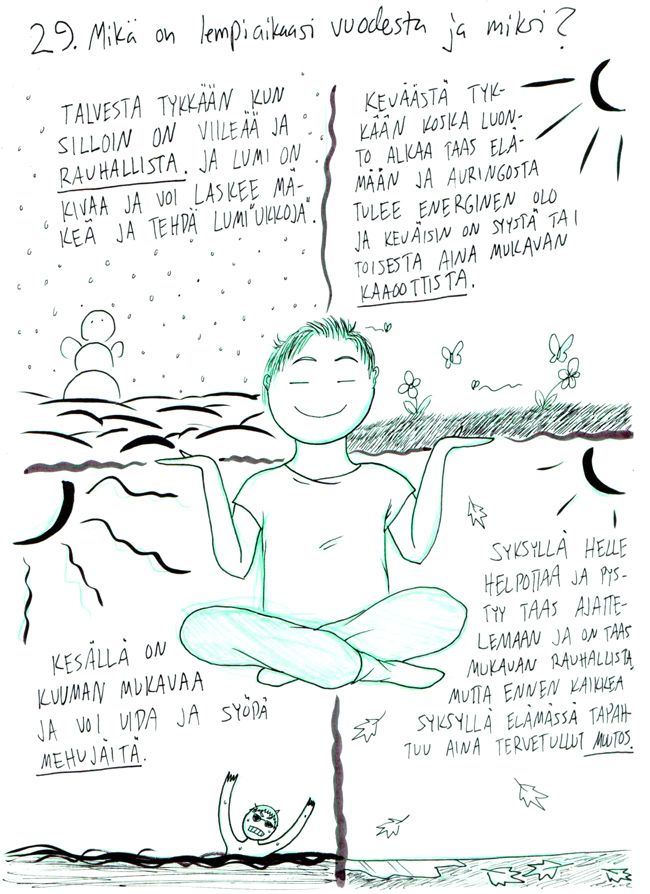 29. Mikä on lempiaikaasi vuodesta ja miksi?
TALVESTA TYKKÄÄN KUN
SILLOIN ON VIILEÄÄ JA
RAUHALLISTA. JA LUMI ON
KIVAA JA VOI LASKEE MÄ-
KEÄ JA TEHDÄ LUMI"UKKOJA".
KEVÄÄSTÄ TYK-
KÄÄN KOSKA LUON-
TO ALKAA TAAS ELÄ-
MÄÄN JA AURINGOSTA
TULEE ENERGINEN OLO
JA KEVÄISIN ON SYYSTÄ TAI
TOISESTA AINA MUKAVAN
KAAOOTTISTA.
KESÄLLÄ ON
KUUMAN MUKAVAA
JA VOI UIDA JA SYÖDÄ
MEHUJÄITÄ.
SYKSYLLÄ HELLE
HELPOTTAA JA PYS-
TYY TAAS AJATTE-
LEMAAN JA ON TAAS
MUKAVAN RAUHALLISTA,
MUTTA ENNEN KAIKKEA
SYKSYLLÄ ELÄMÄSSÄ TAPAH-
TUU AINA TERVETULLUT MUUTOS.